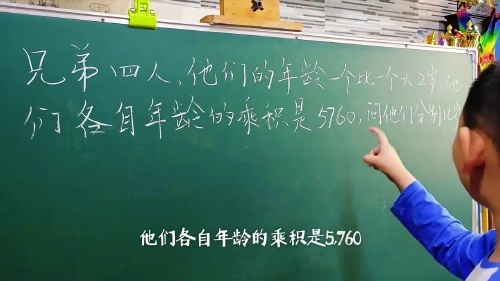 兄弟四人,他们的年龄一个比一个大2岁,他
们各自年龄的乘积是5760,问他们分别几岁
他们各自年龄的乘积是5,760